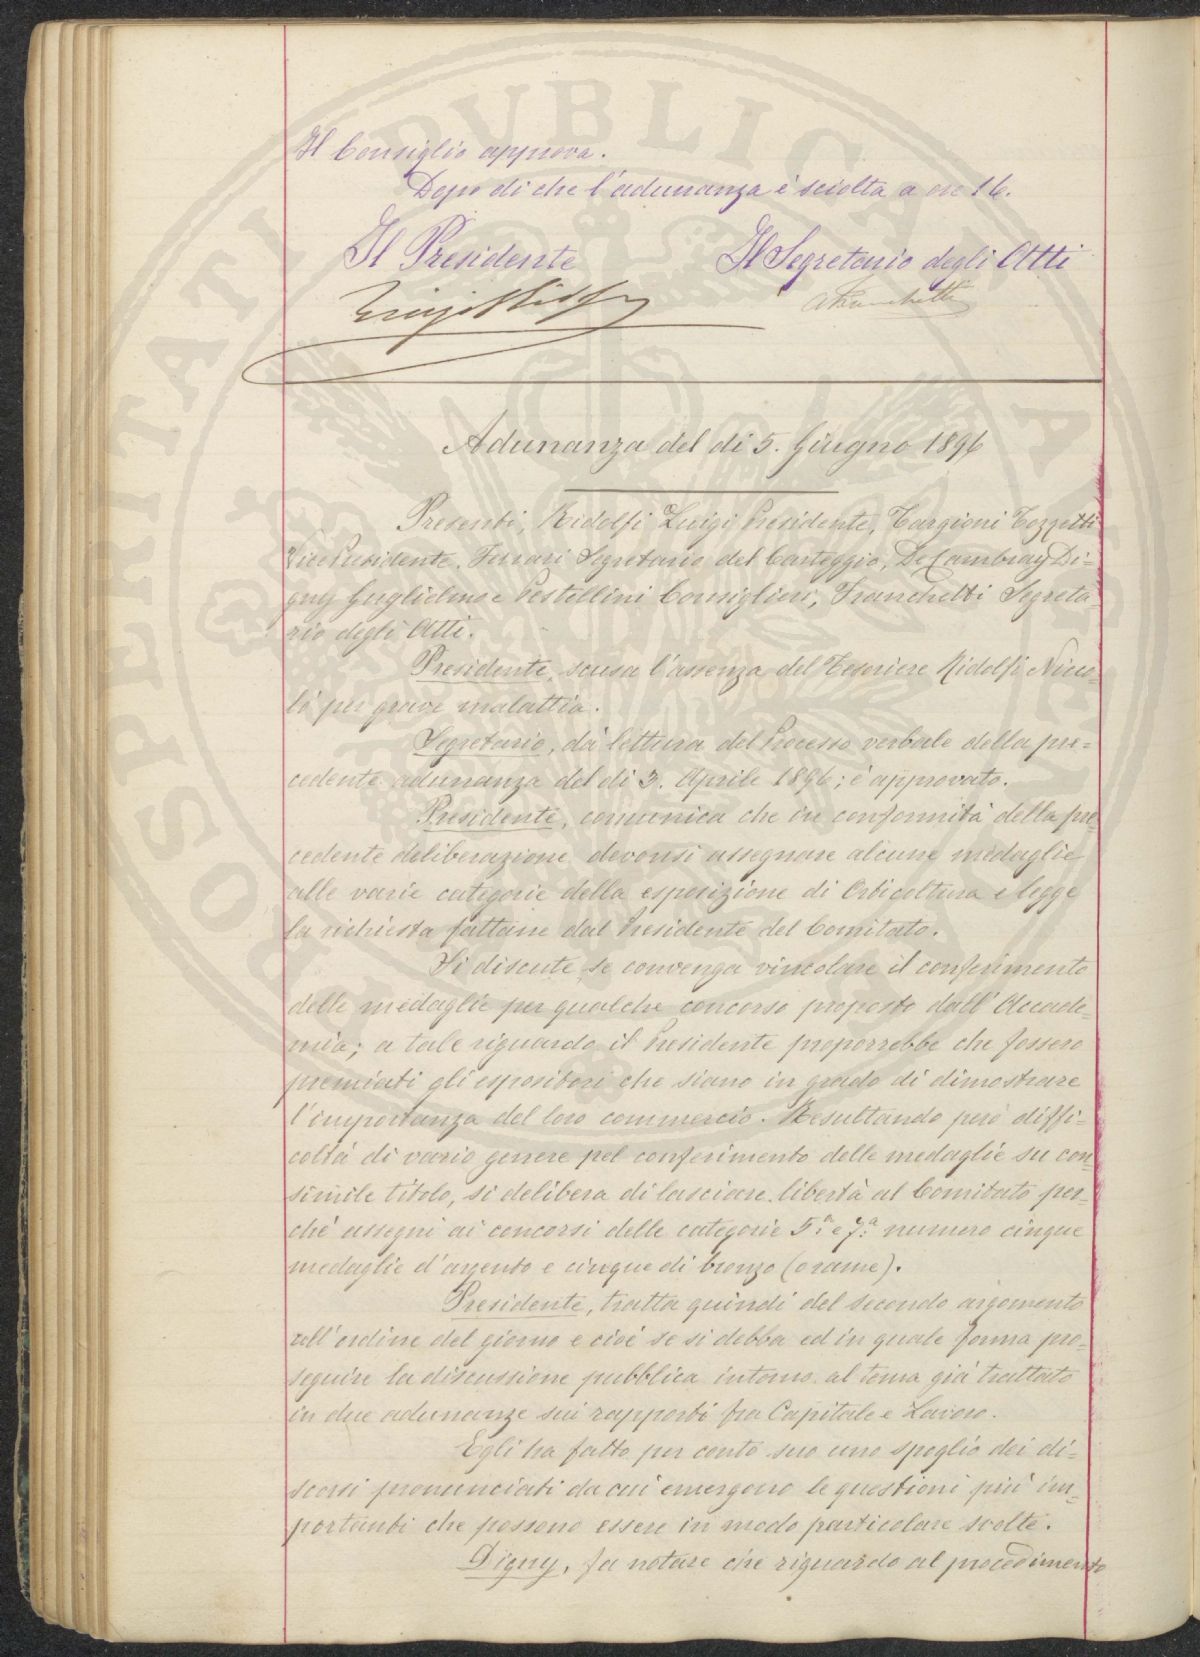 Il Consiglio approva.
Dopo di che l'adunanza è sciolta a ore 16.
Il Presidente Il Segretario degli Atti
Luigi Ridolfi AFranchetti
Adunanza del dì 5. Giugno 1896
Presenti, Ridolfi Luigi Presidente, Targioni Tozzetti
Vice Presidente, Ferrari Segretario del Carteggio, De Cambray Di=
gny Guglielmo e Pestellini Consiglieri, Franchetti Segreta-
rio degli Atti.
Presidente, scusa l'assenza del Tesoriere Ridolfi Nicco-
lò per grave malattia.
Segretario, dà lettura del Processo verbale della pre=
cedente adunanza del dì 3. Aprile 1896; è approvato.
Presidente, comunica che in conformità della pre-
cedente deliberazione devonsi assegnare alcune medaglie
alle varie categorie della esposizione di Orticoltura e legge
la richiesta fattane dal Presidente del Comitato.
Si discute se convenga vincolare il conferimento
delle medaglie per qualche concorso proposto dall'Accade-
mia; a tale riguardo il Presidente proporrebbe che fossero
premiati gli espositori che siano in grado di dimostrare
l'importanza del loro commercio. Resultando però diffi-
coltà di vario genere pel conferimento delle medaglie su con-
simile titolo, si delibera di lasciare libertà al Comitato per-
chè assegni ai concorsi delle categorie 5.a e 7.a numero cinque
medaglie d'argento e cinque di bronzo (o rame).
Presidente, tratta quindi del secondo argomento
all'ordine del giorno e cioè se si debba ed in quale forma pro-
seguire la discussione pubblica intorno al tema già trattato
in due adunanze sui rapporti fra Capitale e Lavoro.
Egli ha fatto per conto suo uno spoglio dei di=
scorsi pronunciati da cui emergono le questioni più im-
portanti che possono essere in modo particolare svolte.
Digny, fa notare che riguardo al procedimento
PROSPERITATI PVBLICAE AVGENDAE